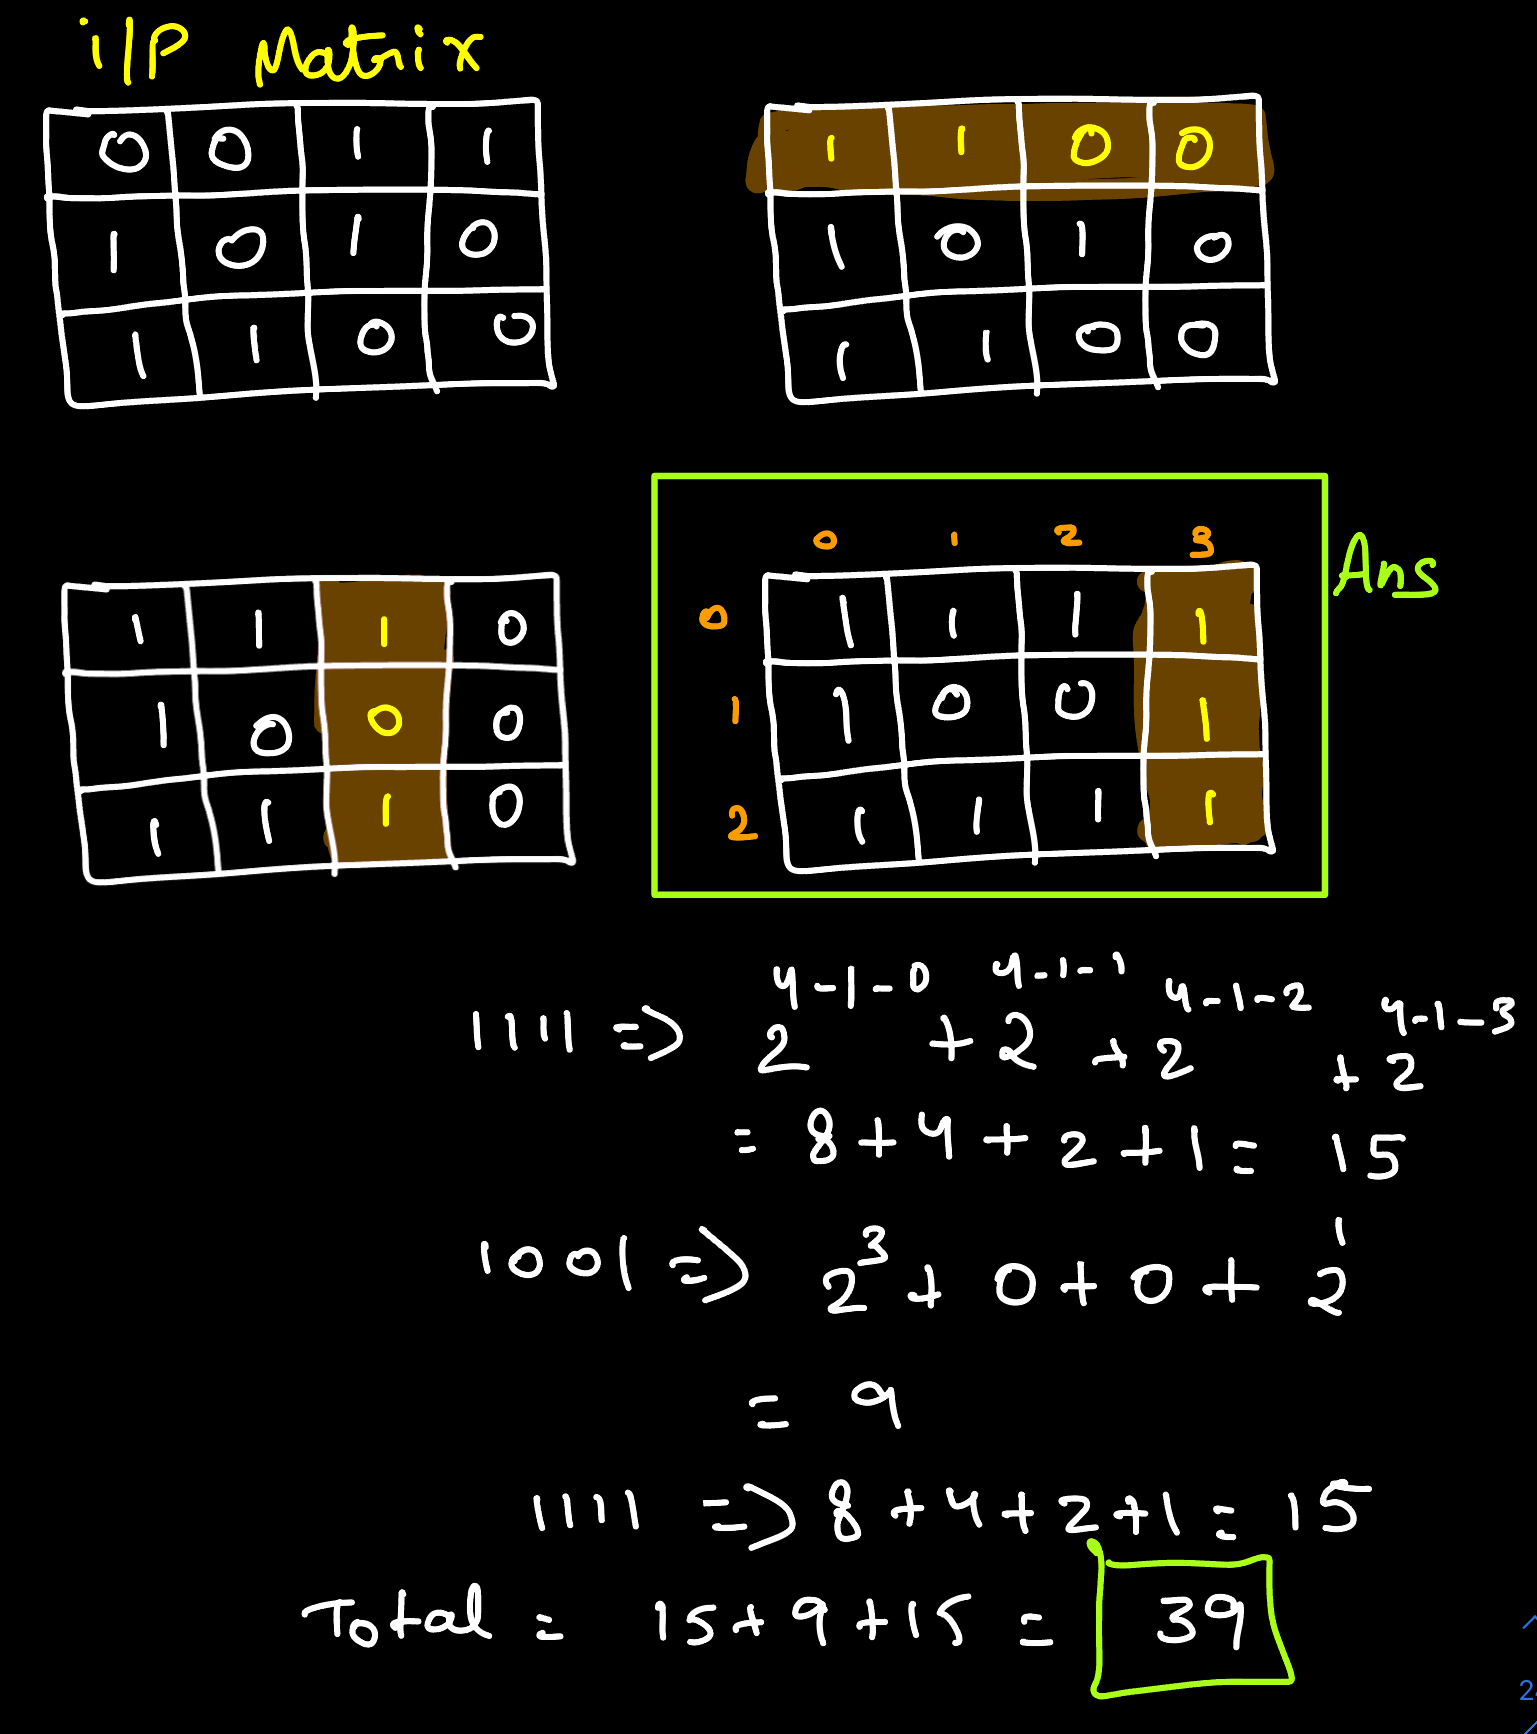 i/P Matrix
0 0 1 1
1 0 1 0
1 1 0 0
1 1 0 0
1 0 1 0
1 1 0 0
1 1 1 0
1 0 0 0
1 1 1 0
Ans
0 1 2 3
0 1 1 1 1
1 1 0 0 1
2 1 1 1 1
1111 => 2^4-1-0 + 2^4-1-1 + 2^4-1-2 + 2^4-1-3
= 8 + 4 + 2 + 1 = 15
1001 => 2^3 + 0 + 0 + 2^1
= 9
1111 => 8 + 4 + 2 + 1 = 15
Total = 15 + 9 + 15 = 39